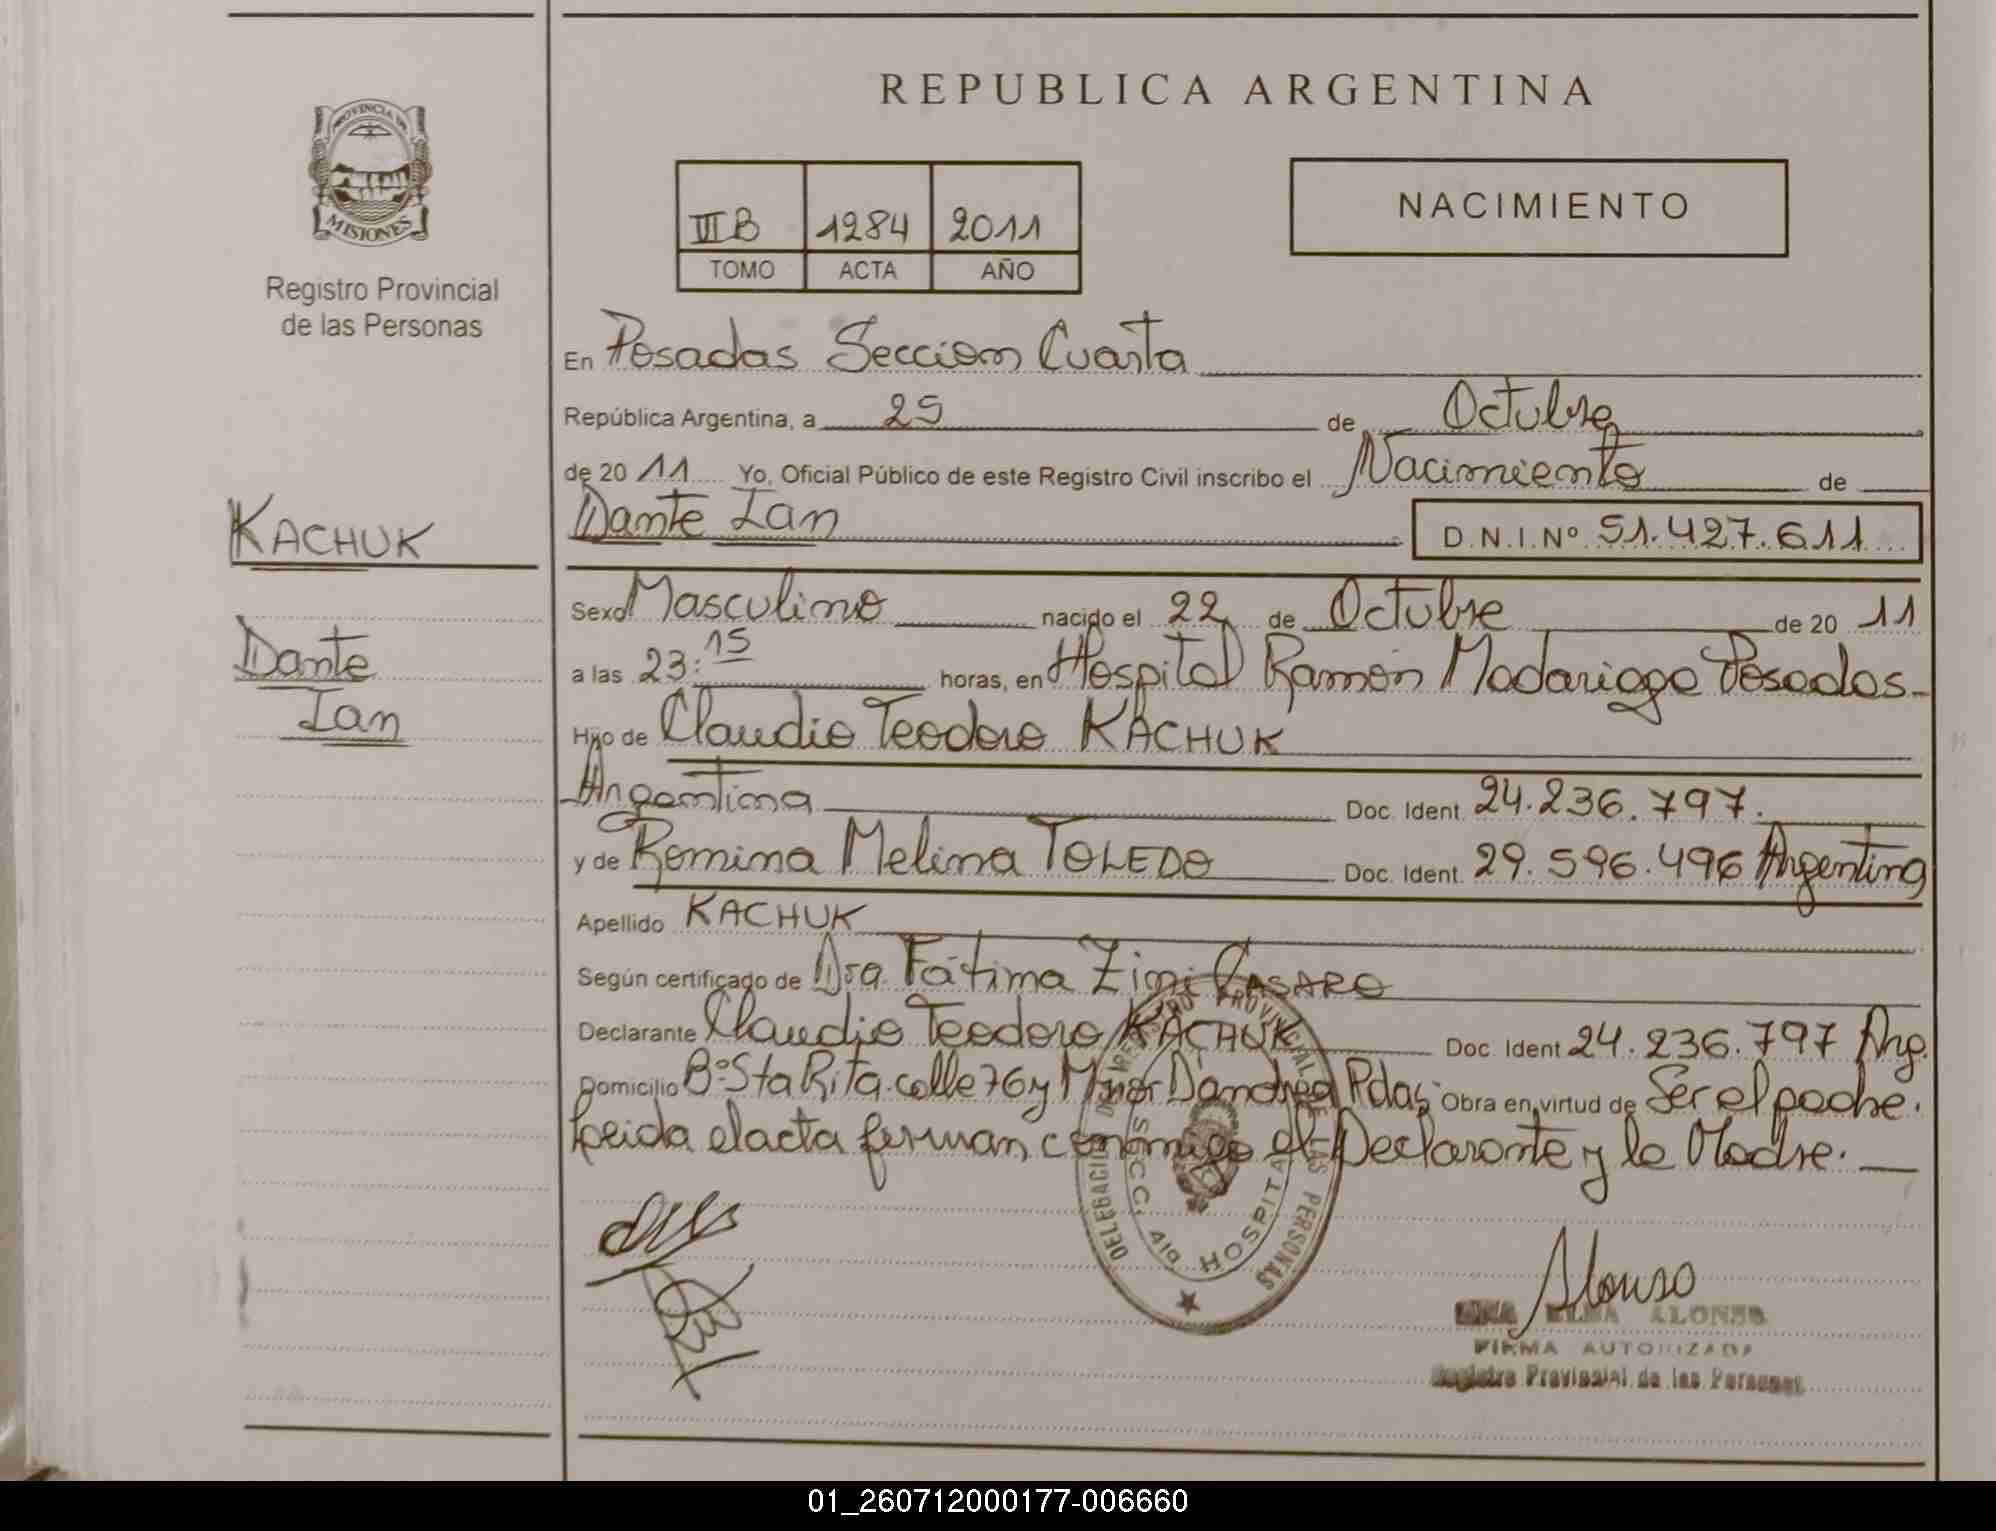 REPUBLICA ARGENTINA
PROVINCIA DE
MISIONES
Registro Provincial
de las Personas
NACIMIENTO
III B 1284 2011
TOMO ACTA AÑO
En Posadas Seccion Cuarta
República Argentina, a 25 de Octubre
de 20 11 Yo, Oficial Público de este Registro Civil inscribo el Nacimiento de
Dante Ian D.N.I.Nº 51.427.611
KACHUK
Dante
Ian
Sexo Masculino nacido el 22 de Octubre de 20 11
a las 23:15 horas, en Hospital Ramón Madariaga Posadas
Hijo de Claudio Teodoro KACHUK
Argentina Doc. Ident. 24.236.797.
y de Romina Melina TOLEDO Doc. Ident. 29.596.496 Argentina
Apellido KACHUK
Según certificado de Dra. Fátima Zini CASARO
Declarante Claudio Teodoro KACHUK Doc. Ident. 24.236.797 Arg.
Domicilio Bº Sta Rita calle 76 y Mñor D'andrea Pdas; Obra en virtud de Ser el padre.
Leida el acta firman conmigo el Declarante y la Madre.
DELEGACION REGISTRO PROVINCIAL DE LAS PERSONAS
SECC. 4ta HOSPITAL
Alonso
ELBA ALONSO
FIRMA AUTORIZADA
Registro Provincial de las Personas
01_260712000177-006660